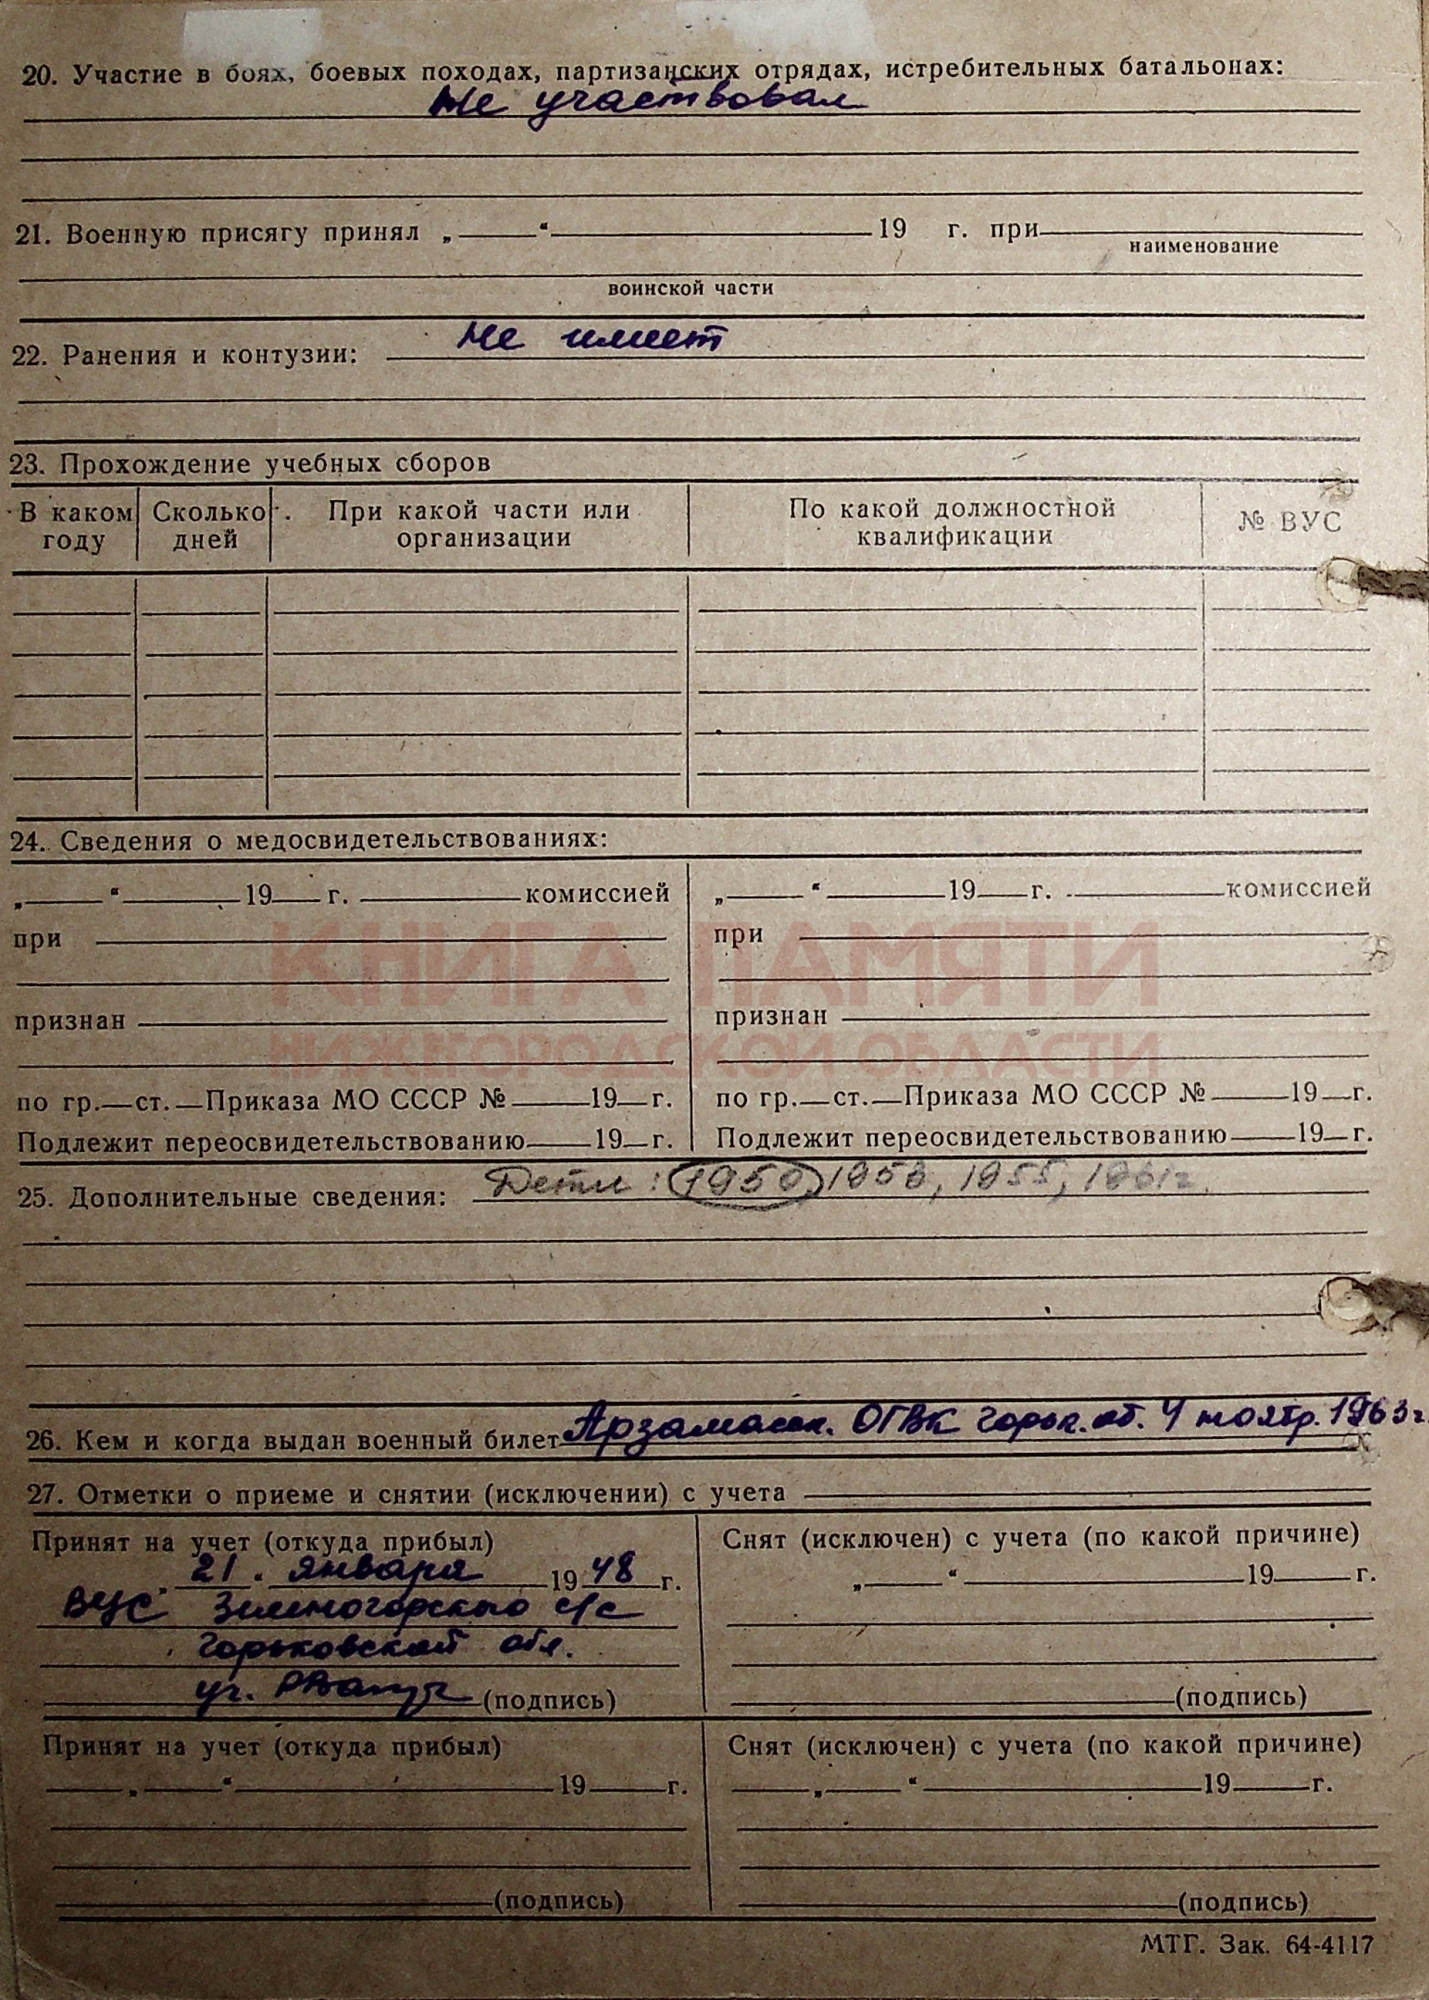 20. Участие в боях, боевых походах, партизанских отрядах, истребительных батальонах:
Не участвовал
21. Военную присягу принял „ “ 19 г. при
наименование
воинской части
22. Ранения и контузии: Не имеет
23. Прохождение учебных сборов
В каком году Сколько дней При какой части или организации По какой должностной квалификации № ВУС
24. Сведения о медосвидетельствованиях:
„ “ 19 г. комиссией „ “ 19 г. комиссией
при при
КНИГА ПАМЯТИ
признан признан
НИЖЕГОРОДСКОЙ ОБЛАСТИ
по гр. ст. Приказа МО СССР № 19 г. по гр. ст. Приказа МО СССР № 19 г.
Подлежит переосвидетельствованию 19 г. Подлежит переосвидетельствованию 19 г.
25. Дополнительные сведения: Дети: 1950, 1953, 1955, 1961г.
26. Кем и когда выдан военный билет Арзамасск. ОГВК Горьк. об. 4 ноябр. 1963г.
27. Отметки о приеме и снятии (исключении) с учета
Принят на учет (откуда прибыл) Снят (исключен) с учета (по какой причине)
21. января 1948 г. „ “ 19 г.
ВУС Зеленогорского с/с
Горьковской обл.
(подпись) (подпись)
Принят на учет (откуда прибыл) Снят (исключен) с учета (по какой причине)
„ “ 19 г. „ “ 19 г.
(подпись) (подпись)
МТГ. Зак. 64-4117